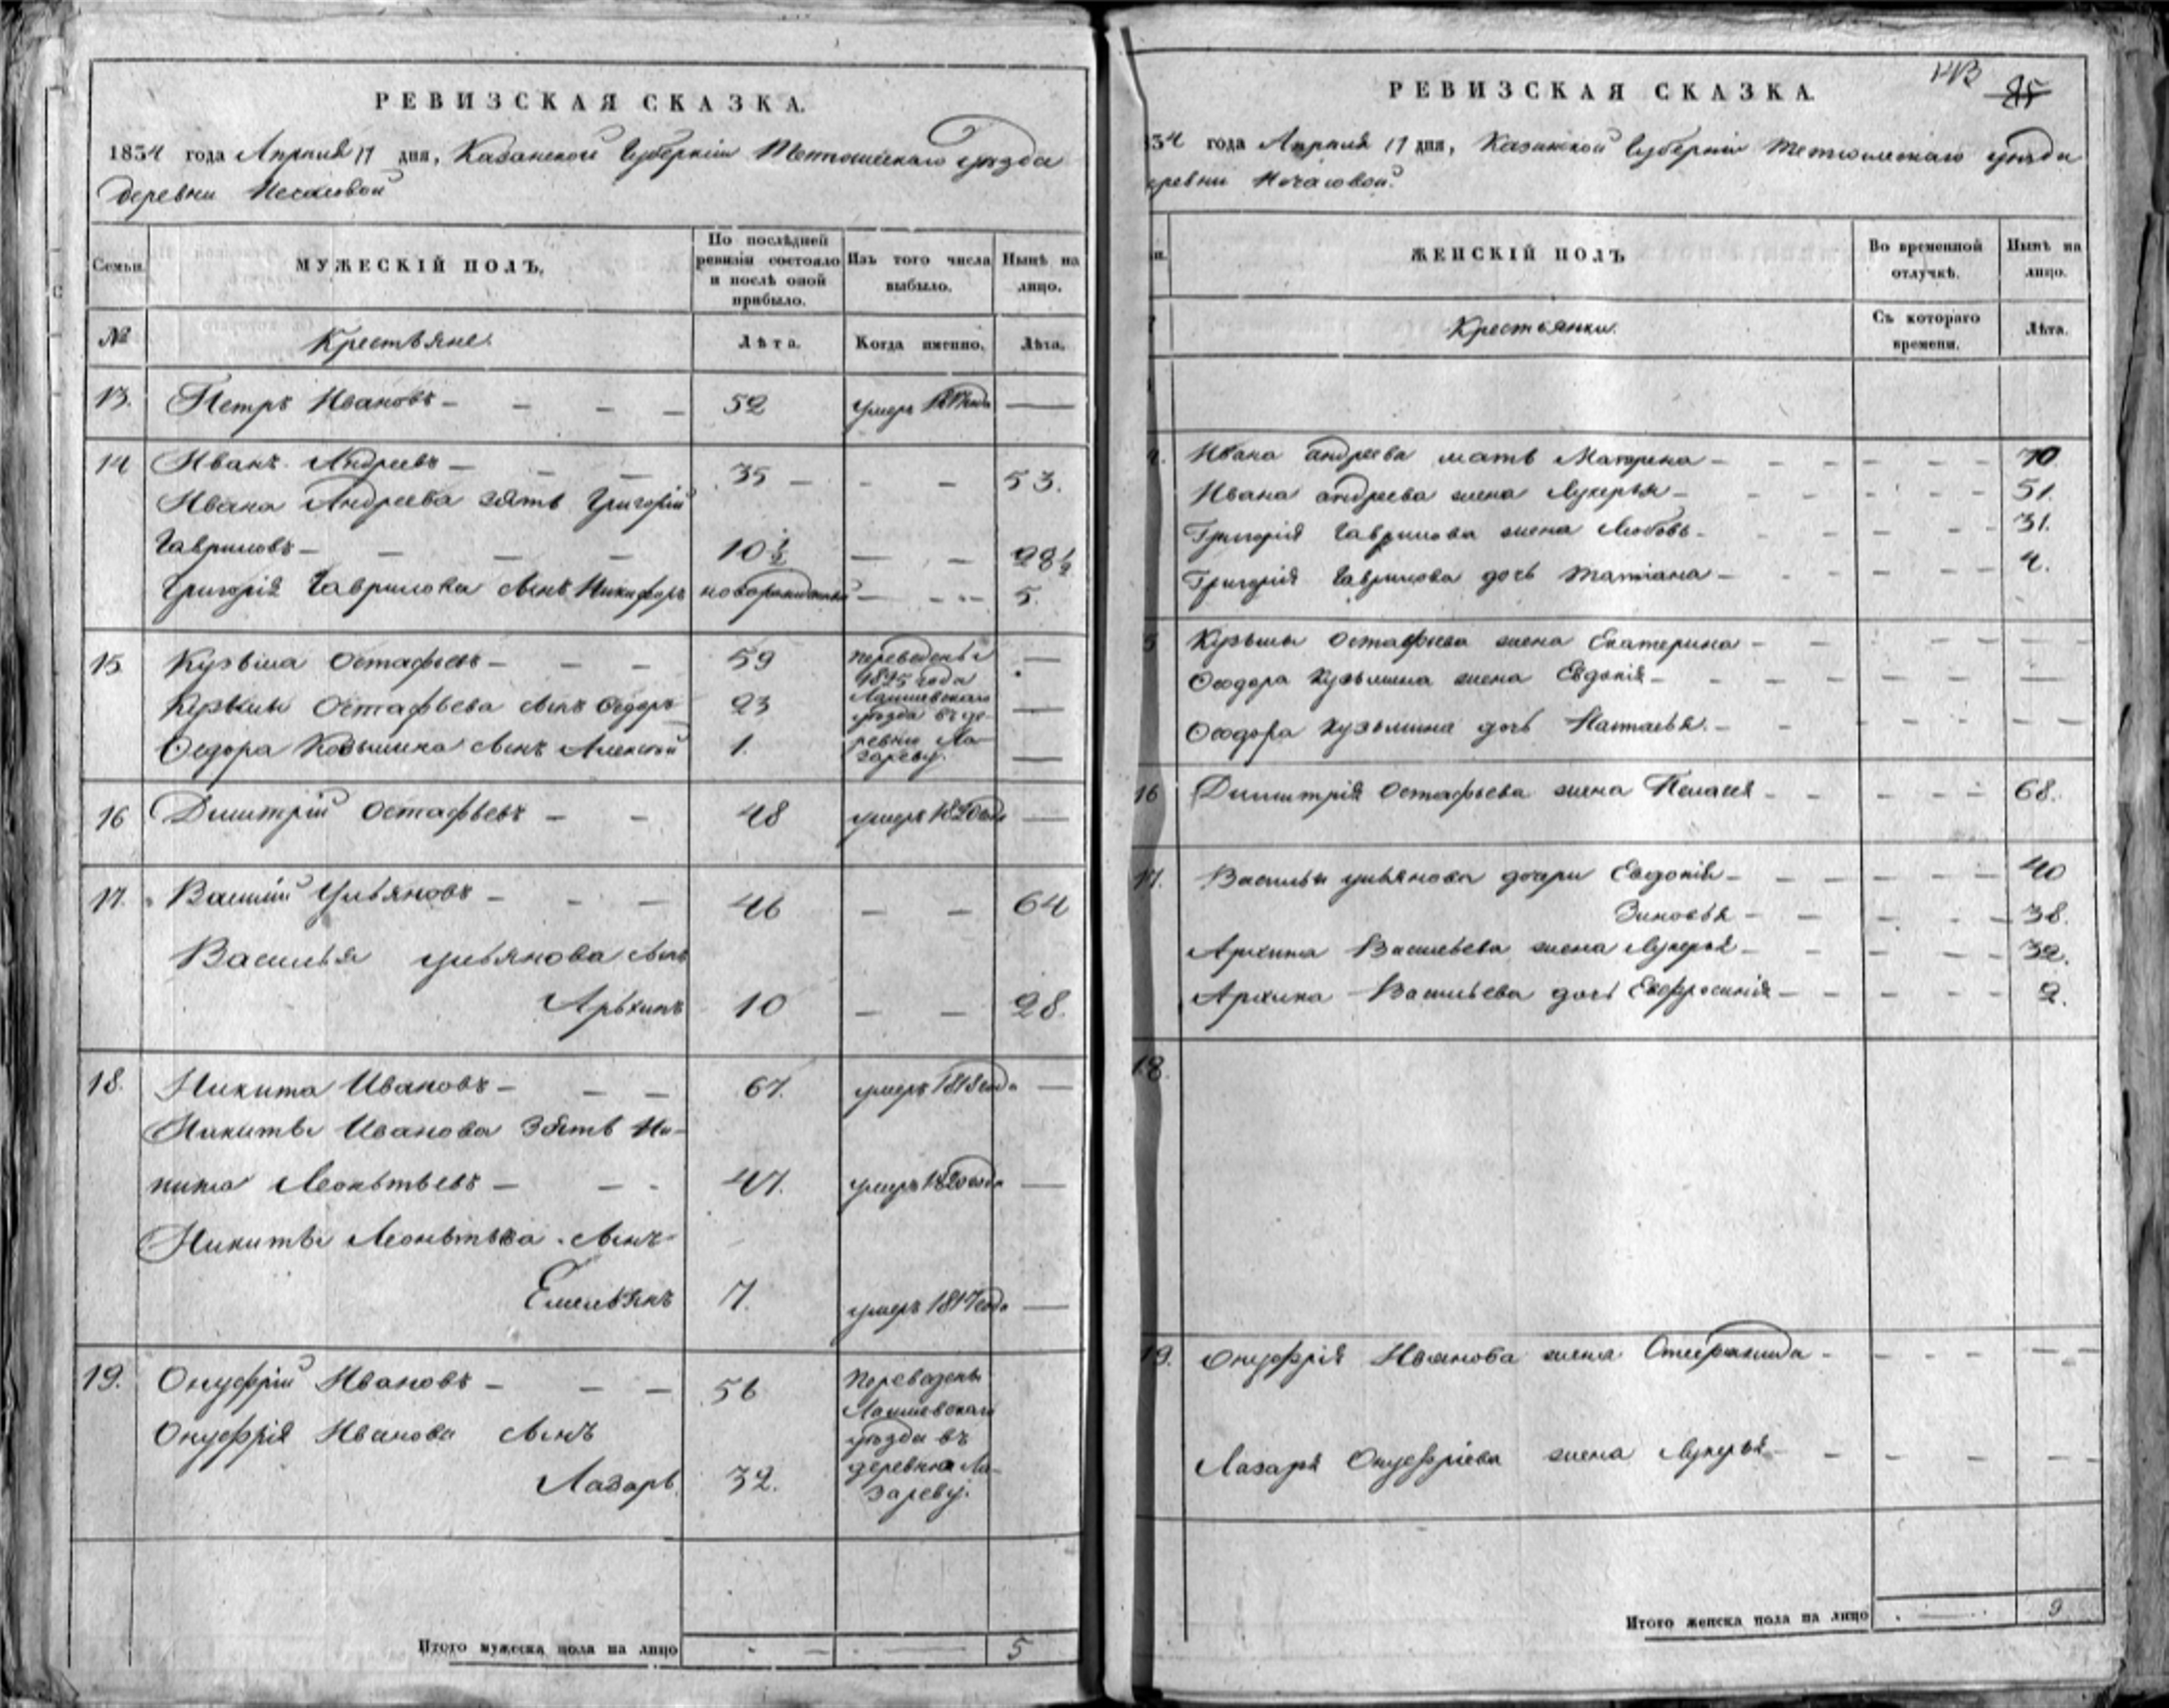 РЕВИЗСКАЯ СКАЗКА.
1834 года Апреля 17 дня, Казанской Губерніи Тетюшскаго уѣзда
деревни
Семьи.
МУЖЕСКІЙ ПОЛЪ.
По послѣдней ревизіи состояло и послѣ оной прибыло.
Изъ того числа выбыло.
Нынѣ на лицо.
№
Крестьяне.
Лѣта.
Когда именно.
Лѣта.
13. Петръ Ивановъ — — — — 52 умеръ —
14 Иванъ Андреевъ — — — 35 — — — 53.
Ивана Андреева зять Григорій
Гавриловъ — — — — 10½ — — 28½
Григорія Гаврилова сынъ Никифоръ новорожденный — — — 5.
15 Кузьма Остафьевъ — — — 59 —
Кузьмы Остафьева сынъ Ѳедоръ 23 —
Ѳедора Козьмина сынъ Алексей 1. —
переведены
1825 года
Лаишевскаго
уѣзда въ де-
ревню Ла-
зареву.
16 Димитрій Остафьевъ — — 48 умеръ 1820 года —
17. Василій Ульяновъ — — — 46 — — 64
Василья Ульянова сынъ
Архипъ 10 — — 28.
18. Никита Ивановъ — — — 67. умеръ 1818 года —
Никиты Иванова зять Ни-
кита Леонтьевъ — — - 47. умеръ 1820 года —
Никиты Леонтьева сынъ
Емельянъ 7. умеръ 1817 года —
19. Онуфрій Ивановъ — — — 56
Онуфрія Иванова сынъ
Лазарь. 32.
Переведены
Лаишевскаго
уѣзда въ
деревню Ла-
зареву.
Итого мужеска пола на лицо 5
РЕВИЗСКАЯ СКАЗКА.
85
34 года Апреля 17 дня, Казанской Губерніи Тетюшскаго уѣзда
еревни
ЖЕНСКІЙ ПОЛЪ
Во временной отлучкѣ.
Нынѣ на лицо.
Крестьянки.
Съ котораго времени.
Лѣта.
4. Ивана Андреева мать Матрена — — — — — — 70.
Ивана Андреева жена Лукерья — — — — — — 51.
Григорія Гаврилова жена Любовь — — — — — — 31.
Григорія Гаврилова дочь Татіана — — — — — — 4.
5 Кузьмы Остафьева жена Екатерина — — — — — —
Ѳеодора Кузьмина жена Евдокія — — — — — —
Ѳеодора Кузьмина дочь Наталья. — — — — — —
16 Димитрія Остафьева жена Пелагея — — — — — 68.
17. Василья Ульянова дочери Евдокія — — — — — — 40
Зиновья — — — — — 38.
Архипа Васильева жена Лукерья — — — — — 32.
Архипа Васильева дочь Евфросинія — — — — — 2.
18.
19. Онуфрія Иванова жена — — — — — —
Лазаря Онуфріева жена Лукерья — — — — — —
Итого женска пола на лицо 9